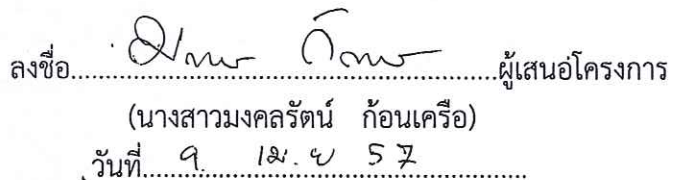 ลงชื่อ..........................................................ผู้เสนอโครงการ
(นางสาวมงคลรัตน์ ก้อนเครือ)
วันที่ 9. เม. ย 57